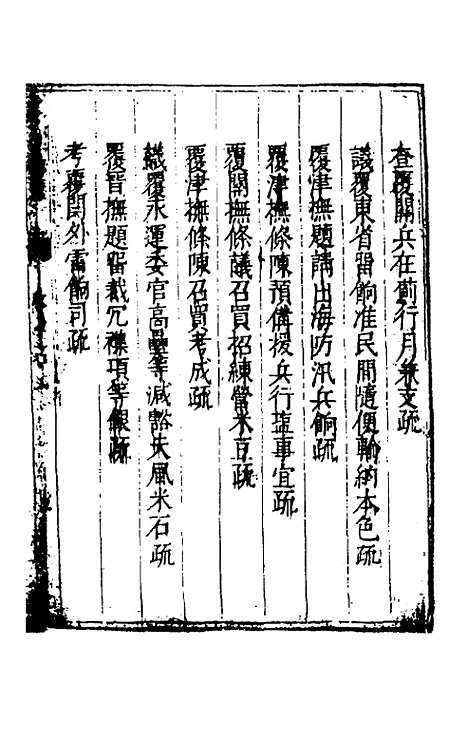 查覆關兵在前行月兼支疏
議覆東省留餉准民間隨便輸納本色疏
覆津撫題請出海防汛兵餉疏
覆津撫條陳預備援兵行塩事宜疏
覆關撫條議召買招練營米豆疏
覆津撫條陳召買考成疏
議覆永運委官高壘等減豁失風米石疏
覆晉撫題留裁冗襍項等銀疏
考覆関外管餉司疏